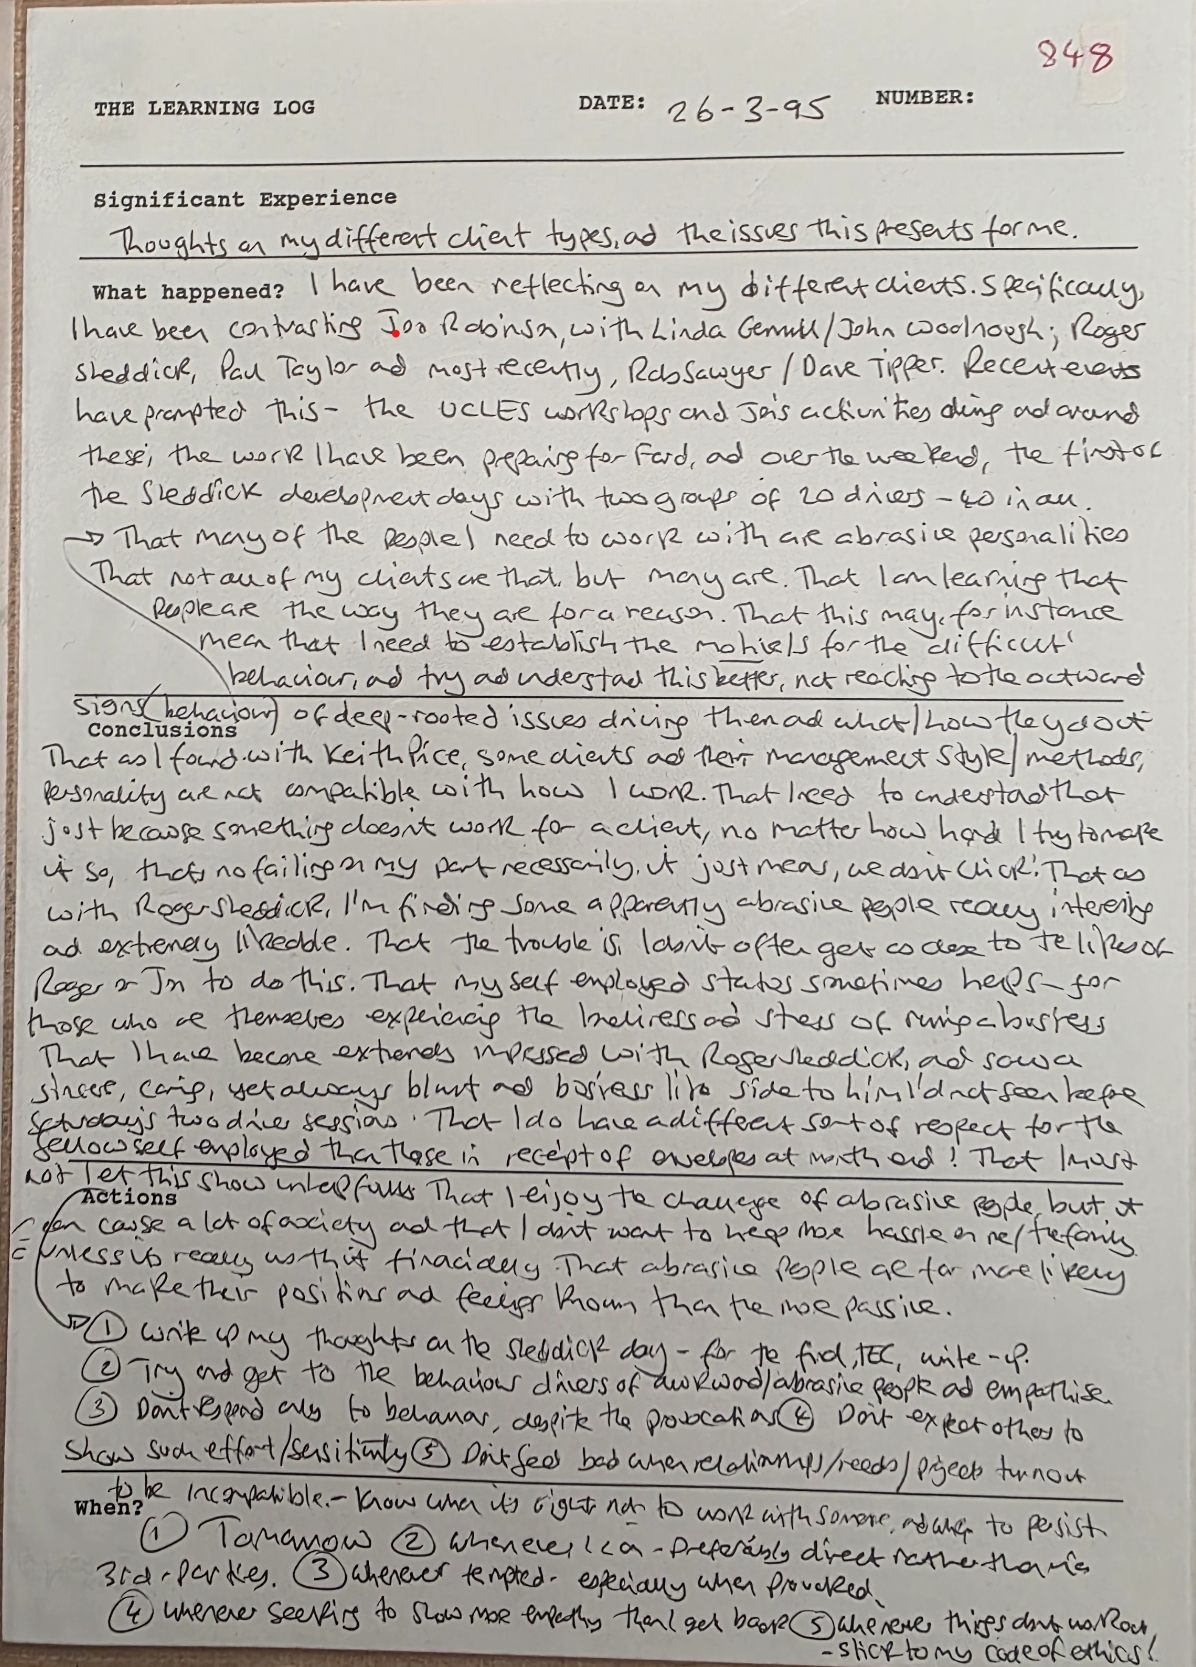 848
THE LEARNING LOG DATE: 26-3-95 NUMBER:
Significant Experience
Thoughts on my different client types, ad the issues this presents for me.
What happened? I have been reflecting on my different clients. Specifically,
I have been contrasting Jon Robinson, with Linda Gemmill/John Woolnough; Roger
Sleddick, Paul Taylor ad most recently, Rob Sawyer / Dave Tipper. Recent events
have prompted this - the UCLES workshops and Jon's activities ding ad around
these; the work I have been preparing for Ford, ad over the weekend, the first of
the Sleddick development days with two groups of 20 drivers - 40 in all.
→ That many of the people I need to work with are abrasive personalities
That not all of my clients are that, but many are. That I am learning that
people are the way they are for a reason. That this may, for instance
mean that I need to establish the motive/s for the 'difficult'
behaviour, ad try ad understad this better, not reacting to the outward
signs (behaviour) of deep-rooted issues driving them ad what/how they do it
Conclusions
That as I found with Keith Price, some clients ad their management style/methods,
personality are not compatible with how I work. That I need to understad that
just because something doesn't work for a client, no matter how hard I try to make
it so, thats no failing on my part necessarily, it just means, we don't 'click'. That as
with Roger Sleddick, I'm finding some apparently abrasive people really interesting
ad extremely likeable. That the trouble is, I don't often get so close to the likes of
Roger or Jon to do this. That my self employed status sometimes helps - for
those who are themselves experiencing the loneliness ad stress of running a business
That I have become extremely impressed with Roger Sleddick, ad saw a
sincere, caring, yet always blunt and business like side to him I'd not seen before
Saturday's two driver sessions. That I do have a different sort of respect for the
fellow self employed than those in receipt of envelopes at month end! That I must
not let this show unhelpfully. That I enjoy the challenge of abrasive people, but it
Actions
can cause a lot of anxiety ad that I don't want to heap more hassle on me/the family
unless its really worth it financially. That abrasive people are far more likely
to make their positions ad feelings known than the more passive.
→ ① Write up my thoughts on the Sleddick day - for the final, TEC, write-up.
② Try and get to the behaviour drivers of awkward/abrasive people ad empathise.
③ Don't respond only to behaviour, despite the provocations ④ Don't expect others to
show such effort/sensitivity ⑤ Don't feel bad when relationships/needs/projects turn out
to be incompatible. - Know when its right not to work with someone, ad when to persist
When?
① Tomorrow ② Whenever I can - preferably direct rather than via
3rd-parties. ③ Whenever tempted - especially when provoked.
④ Whenever seeking to show more empathy than I get back ⑤ Whenever things don't work out,
- stick to my code of ethics!